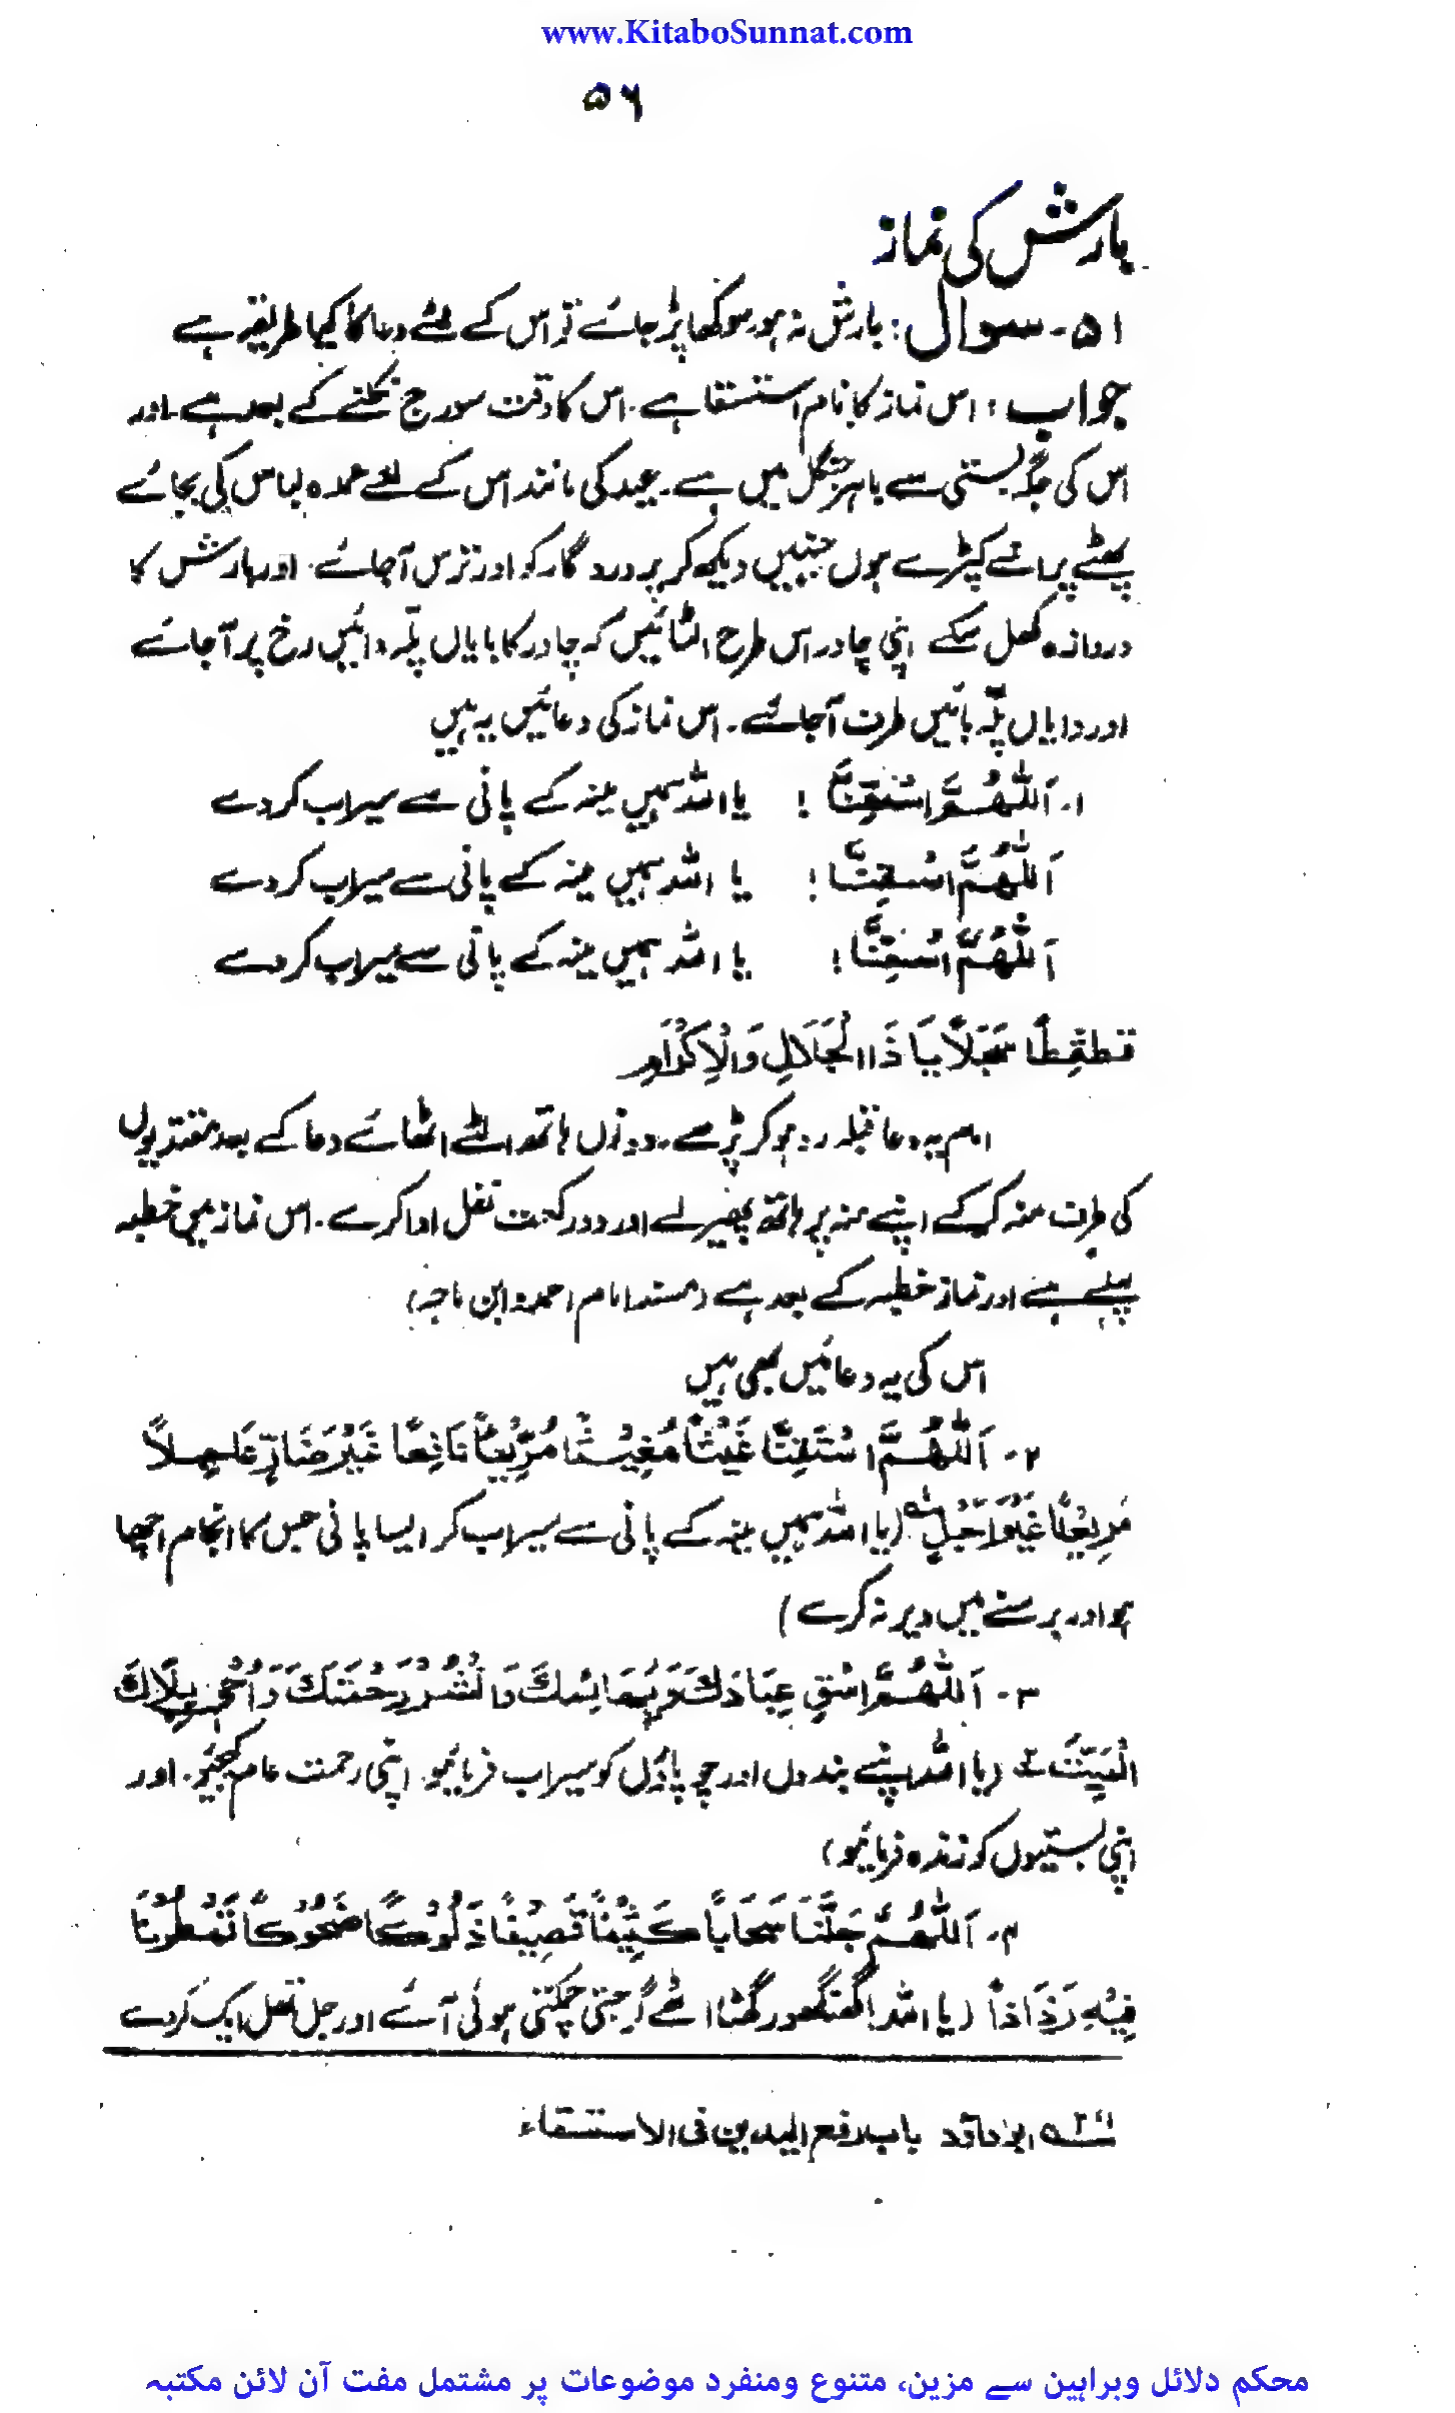 www.KitaboSunnat.com
۵۶
بارش کی نماز
۵۱۔ سوال: بارش نہ ہو سوکھا پڑ جائے تو اس کے لئے دعا کا کیا طریقہ ہے
جواب: اس نماز کا نام استسقا ہے۔ اس کا وقت سورج نکلنے کے بعد ہے۔ اور
اس کی جگہ بستی سے باہر جنگل میں ہے۔ عید کی مانند اس کے لئے عمدہ لباس کی بجائے
پھٹے پرانے کپڑے ہوں جنہیں دیکھ کر پروردگار کو اور ترس آجائے۔ اور بارش کا
دروازہ کھل سکے اپنی چادر اس طرح الٹائیں کہ چادر کا بایاں پلہ دائیں رخ پر آجائے
اور دایاں پلہ بائیں طرف آجائے۔ اس نماز کی دعائیں یہ ہیں
۱۔ اَللّٰهُمَّ اسْقِنَا ! یا اللہ ہمیں مینہ کے پانی سے سیراب کر دے
اَللّٰهُمَّ اسْقِنَا ! یا اللہ ہمیں مینہ کے پانی سے سیراب کر دے
اَللّٰهُمَّ اسْقِنَا ! یا اللہ ہمیں مینہ کے پانی سے سیراب کر دے
سَجَلًا يَا ذَا الْجَلَالِ وَالْاِكْرَامِ
امام یہ دعا قبلہ رو ہو کر پڑھے۔ دونوں ہاتھ الٹے اٹھائے دعا کے بعد مقتدیوں
کی طرف منہ کر کے اپنے منہ پر ہاتھ پھیر لے اور دو رکعت نفل ادا کرے۔ اس نماز میں خطبہ
پہلے ہے اور نماز خطبہ کے بعد ہے (مسند امام احمد۔ ابن ماجہ)
اس کی یہ دعائیں بھی ہیں
۲۔ اَللّٰهُمَّ اسْقِنَا غَيْثًا مُغِيْثًا مُرِيْعًا نَافِعًا غَيْرَ ضَارٍّ عَاجِلًا
مَرِيْعًا غَيْرَ اٰجِلٍ (یا اللہ ہمیں مینہ کے پانی سے سیراب کر ایسا پانی جس کا انجام اچھا
ہو اور برسنے میں دیر نہ کرے)
۳۔ اَللّٰهُمَّ اسْقِ عِبَادَكَ وَبَهَائِمَكَ وَانْشُرْ رَحْمَتَكَ وَاَحْيِ بِلَادَكَ
الْمَيِّتَ ۲ (یا اللہ اپنے بندوں اور چوپاؤں کو سیراب فرمائیو۔ اپنی رحمت عام کیجئیو۔ اور
اپنی بستیوں کو زندہ فرمائیو)
۴۔ اَللّٰهُمَّ جَلِّلْنَا سَحَابًا كَثِيْفًا قَصِيْفًا دَلُوْكًا ضَحُوْكًا تُمْطِرُنَا
مِنْهُ رَذَاذًا (یا اللہ! گھنگھور گھٹا اٹھے گرجتی چمکتی ہوئی آئے اور جل تھل ایک کر دے
ابو داؤد باب رفع الیدین فی الاستسقاء
محکم دلائل وبراہین سے مزین، متنوع ومنفرد موضوعات پر مشتمل مفت آن لائن مکتبہ